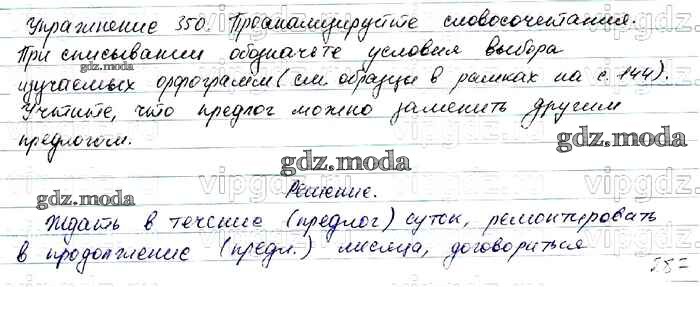 Упражнение 350. Проанализируйте словосочетания.
При списывании обозначьте условия выбора
изучаемых орфограмм (см. образцы в рамках на с. 144).
Учтите, что предлог можно заменить другим
предлогом.
Решение.
Ждать в течение (предлог) суток, ремонтировать
в продолжение (предл.) месяца, договориться
gdz.moda
gdz.moda
gdz.moda
gdz.moda